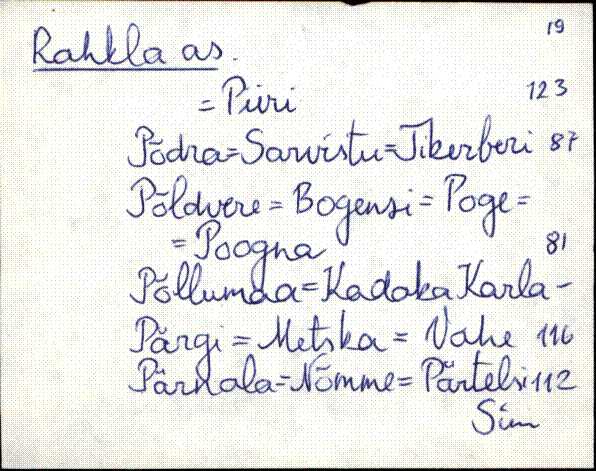 19
Rahkla as.
= Piiri 123
Põdra = Sarvistu = Tikerberi 87
Põldvere = Bogensi = Poge =
= Poogna 81
Põllumaa = Kadaka Karla -
Pärgi = Metska = Vahe 116
Pärnala = Nõmme = Pärtelsi 112
Sim